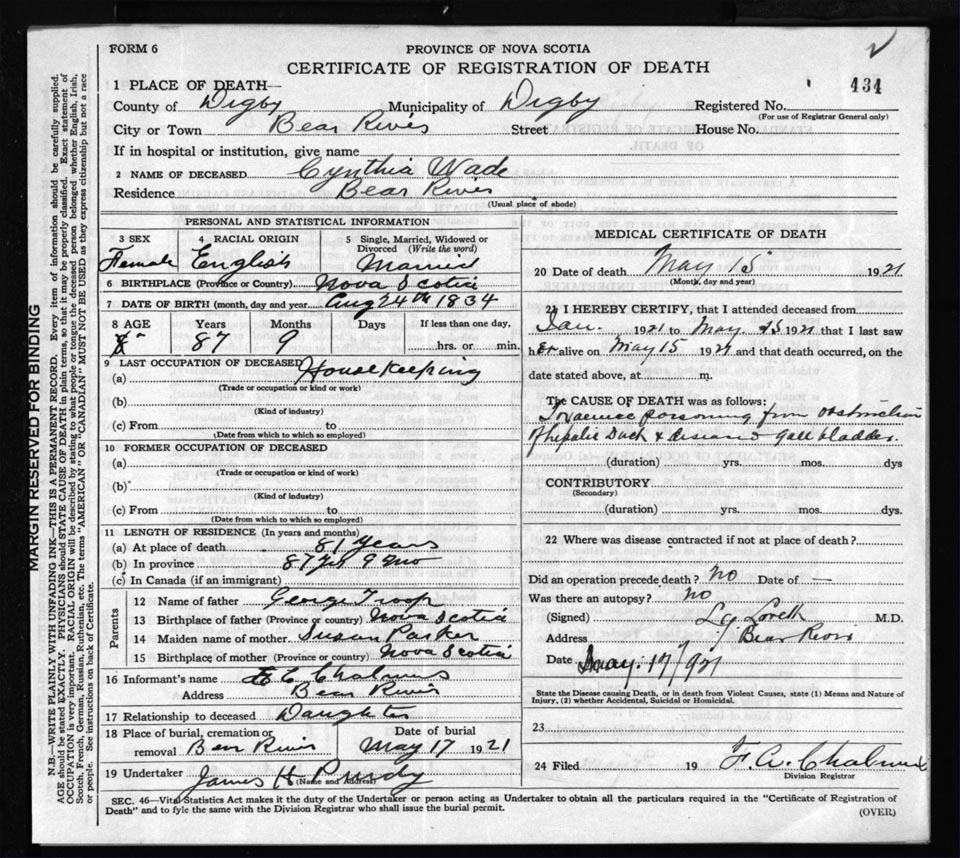 FORM 6
PROVINCE OF NOVA SCOTIA
CERTIFICATE OF REGISTRATION OF DEATH
434
1 PLACE OF DEATH—
County of Digby Municipality of Digby Registered No.
(For use of Registrar General only)
City or Town Bear River Street House No.
If in hospital or institution, give name
2 NAME OF DECEASED Cynthia Wade
Residence Bear River
(Usual place of abode)
PERSONAL AND STATISTICAL INFORMATION
3 SEX Female
4 RACIAL ORIGIN English
5 Single, Married, Widowed or Divorced (Write the word) Married
6 BIRTHPLACE (Province or Country) Nova Scotia
7 DATE OF BIRTH (month, day and year) Aug 24th 1834
8 AGE Years Months Days If less than one day,
87 9 hrs. or min.
9 LAST OCCUPATION OF DECEASED
(a) Housekeeping
(Trade or occupation or kind or work)
(b)
(Kind of industry)
(c) From to
(Date from which to which so employed)
10 FORMER OCCUPATION OF DECEASED
(a)
(Trade or occupation or kind of work)
(b)
(Kind of industry)
(c) From to
(Date from which to which so employed)
11 LENGTH OF RESIDENCE (In years and months)
(a) At place of death 81 Years
(b) In province 87 Yrs 9 Mo
(c) In Canada (if an immigrant)
Parents
12 Name of father George Troop
13 Birthplace of father (Province or country) Nova Scotia
14 Maiden name of mother Susan Parker
15 Birthplace of mother (Province or country) Nova Scotia
16 Informant's name E C Chalmers
Address Bear River
17 Relationship to deceased Daughter
18 Place of burial, cremation or removal Bear River Date of burial May 17 1921
19 Undertaker James H Purdy
(Name and Address)
MEDICAL CERTIFICATE OF DEATH
20 Date of death May 15 1921
(Month, day and year)
21 I HEREBY CERTIFY, that I attended deceased from
Jan. 1921 to May 15 1921 that I last saw
her alive on May 15 1921 and that death occurred, on the
date stated above, at m.
The CAUSE OF DEATH was as follows:
poisoning from obstruction
of hepatic Duct & diseased gall bladder.
(duration) yrs. mos. dys
CONTRIBUTORY
(Secondary)
(duration) yrs. mos. dys.
22 Where was disease contracted if not at place of death?
Did an operation precede death? no Date of —
Was there an autopsy? no
(Signed) Lovett M.D.
Address Bear River
Date May 17/921
State the Disease causing Death, or in death from Violent Causes, state (1) Means and Nature of
Injury, (2) whether Accidental, Suicidal or Homicidal.
23
24 Filed 19 F. A. Chalmers
Division Registrar
SEC. 46—Vital Statistics Act makes it the duty of the Undertaker or person acting as Undertaker to obtain all the particulars required in the "Certificate of Registration of
Death" and to fyle the same with the Division Registrar who shall issue the burial permit.
(OVER)
MARGIN RESERVED FOR BINDING
N.B.—WRITE PLAINLY WITH UNFADING INK—THIS IS A PERMANENT RECORD. Every item of information should be carefully supplied.
AGE should be stated EXACTLY. PHYSICIANS should STATE CAUSE OF DEATH in plain terms, so that it may be properly classified. Exact statement of
OCCUPATION is very important. RACIAL ORIGIN will be described by stating to what people or tongue the deceased person belonged whether English, Irish,
Scotch, French, German, Russian, Ruthenian, etc. The terms "AMERICAN" OR "CANADIAN" MUST NOT BE USED as they express citizenship but not a race
or people. See instructions on back of Certificate.